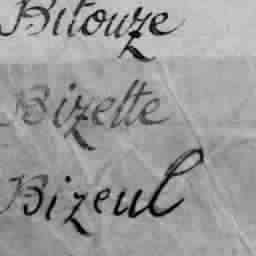 Bitouze
Bizette
Bizeul